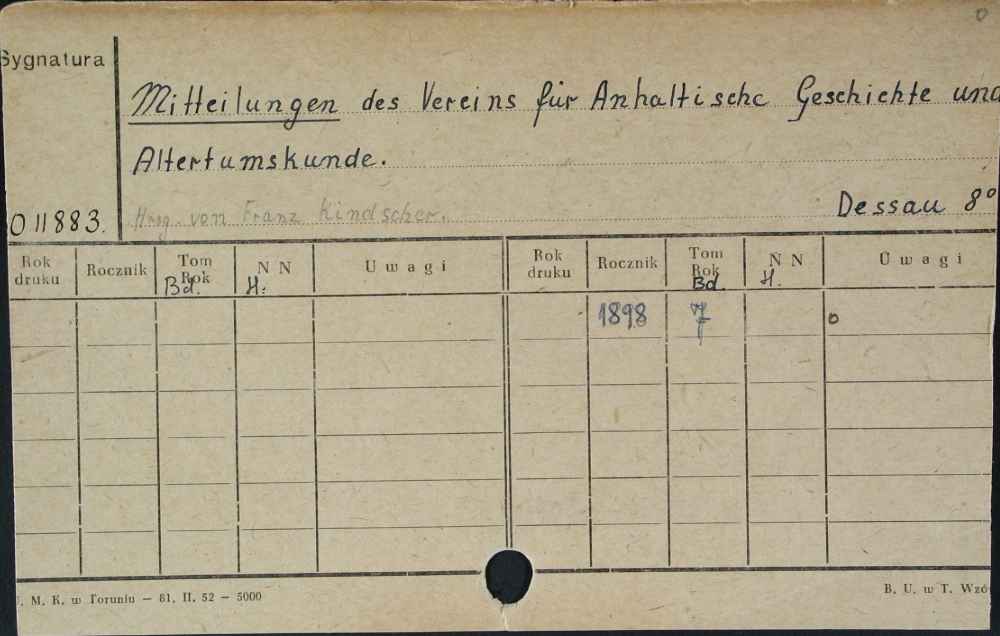 o
Sygnatura
Mitteilungen des Vereins für Anhaltische Geschichte und
Altertumskunde.
O 11883. Hrsg. von Franz Kindscher. Dessau 8°
Rok druku Rocznik Tom Rok Bd. N N H. Uwagi Rok druku Rocznik Tom Rok Bd. N N H. Uwagi
1898 7 o
M. K. w Toruniu — 81. II. 52 — 5000 B. U. w T. Wzó